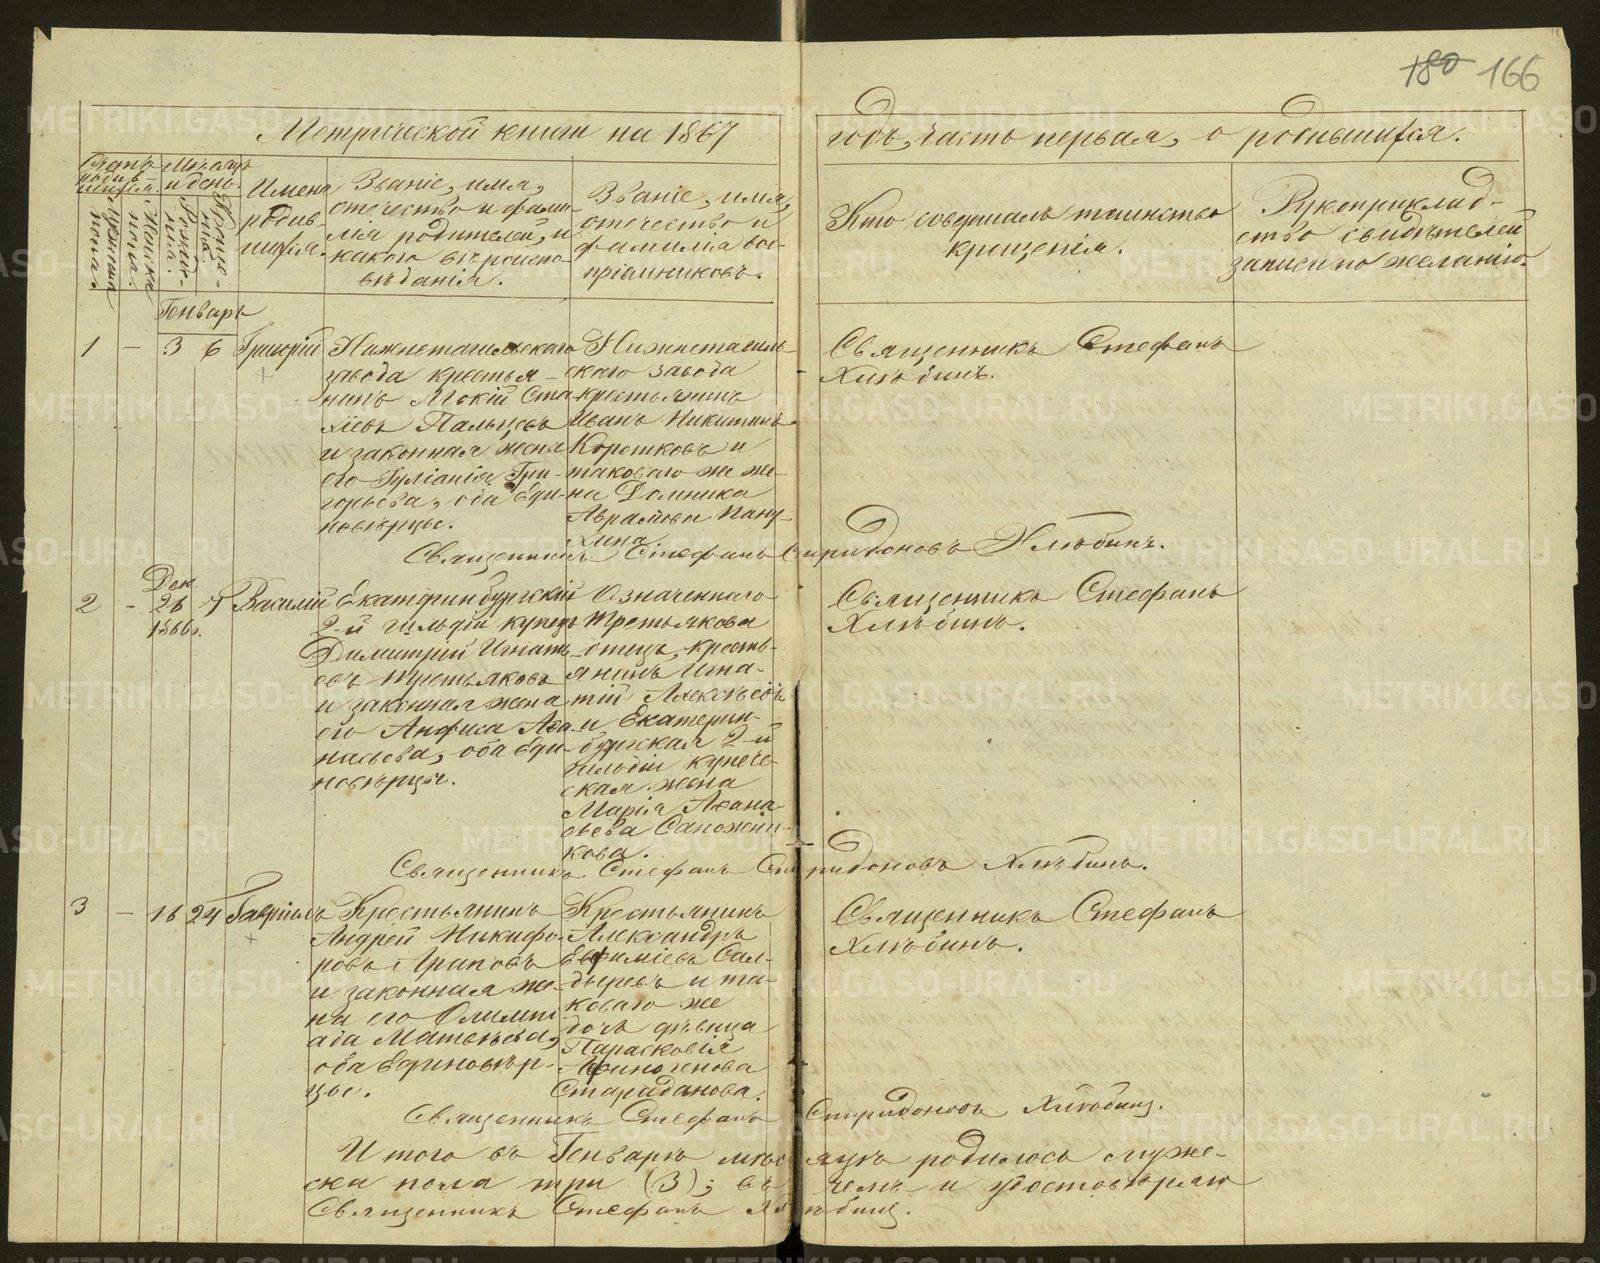 180 166
Метрической книги на 1867
годъ, часть первая, о родившихся.
Счетъ родив-
шихся.
Мужеска
пола.
Женска
пола.
Мѣсяцъ
и день.
Рожде-
нія.
Креще-
нія.
Имена
родив-
шихся.
Званіе, имя,
отечество и фами-
лія родителей, и
какого вѣроиспо-
вѣданія.
Званіе, имя,
отечество и
фамилія вос-
пріемниковъ.
Кто совершалъ таинство
крещенія.
Рукоприклад-
ство свидѣтелей
записи по желанію.
Генварь
1 - 3 6 Григорій
Нижнетагильскаго
завода крестья-
нинъ Мокій Ста-
хіевъ Пальцевъ
и законная жена
его Іуліанія Гри-
горьева, оба еди-
новѣрцы.
Нижнетагиль-
скаго завода
крестьянинъ
Иванъ Никитинъ
Коротковъ и
таковаго же же-
на Домника
Аврамова Пану-
хина.
Священникъ Стефанъ
Хлѣбинъ.
Священникъ Стефанъ Спиридоновъ Хлѣбинъ.
2 - Дек. 26 1866г. 7 Василій
Екатеринбургскій
2-й гильдіи купецъ
Димитрій Игнать-
евъ Третьяковъ
и законная жена
его Анфиса Аѳа-
насьева, оба еди-
новѣрцы.
Означеннаго
Третьякова
отецъ, кресть-
янинъ Игна-
тій Алексѣевъ
и Екатерин-
бургская 2-й
гильдіи купече-
ская жена
Марія Аѳана-
сьева Сапожни-
кова.
Священникъ Стефанъ
Хлѣбинъ.
Священникъ Стефанъ Спиридоновъ Хлѣбинъ.
3 - 18 24 Гавріилъ
Крестьянинъ
Андрей Никифо-
ровъ Траповъ
и законная же-
на его Олимпі-
ада Матвѣева,
оба единовѣр-
цы.
Крестьянинъ
Александръ
Евфиміевъ Сал-
дыревъ и та-
коваго же
дочь дѣвица
Парасковія
Афиногенова
Старабанова.
Священникъ Стефанъ
Хлѣбинъ.
Священникъ Стефанъ Спиридоновъ Хлѣбинъ.
Итого въ Генварѣ мѣсяцѣ родилось муже-
ска пола три (3); въ чемъ и удостовѣряю
Священникъ Стефанъ Хлѣбинъ.